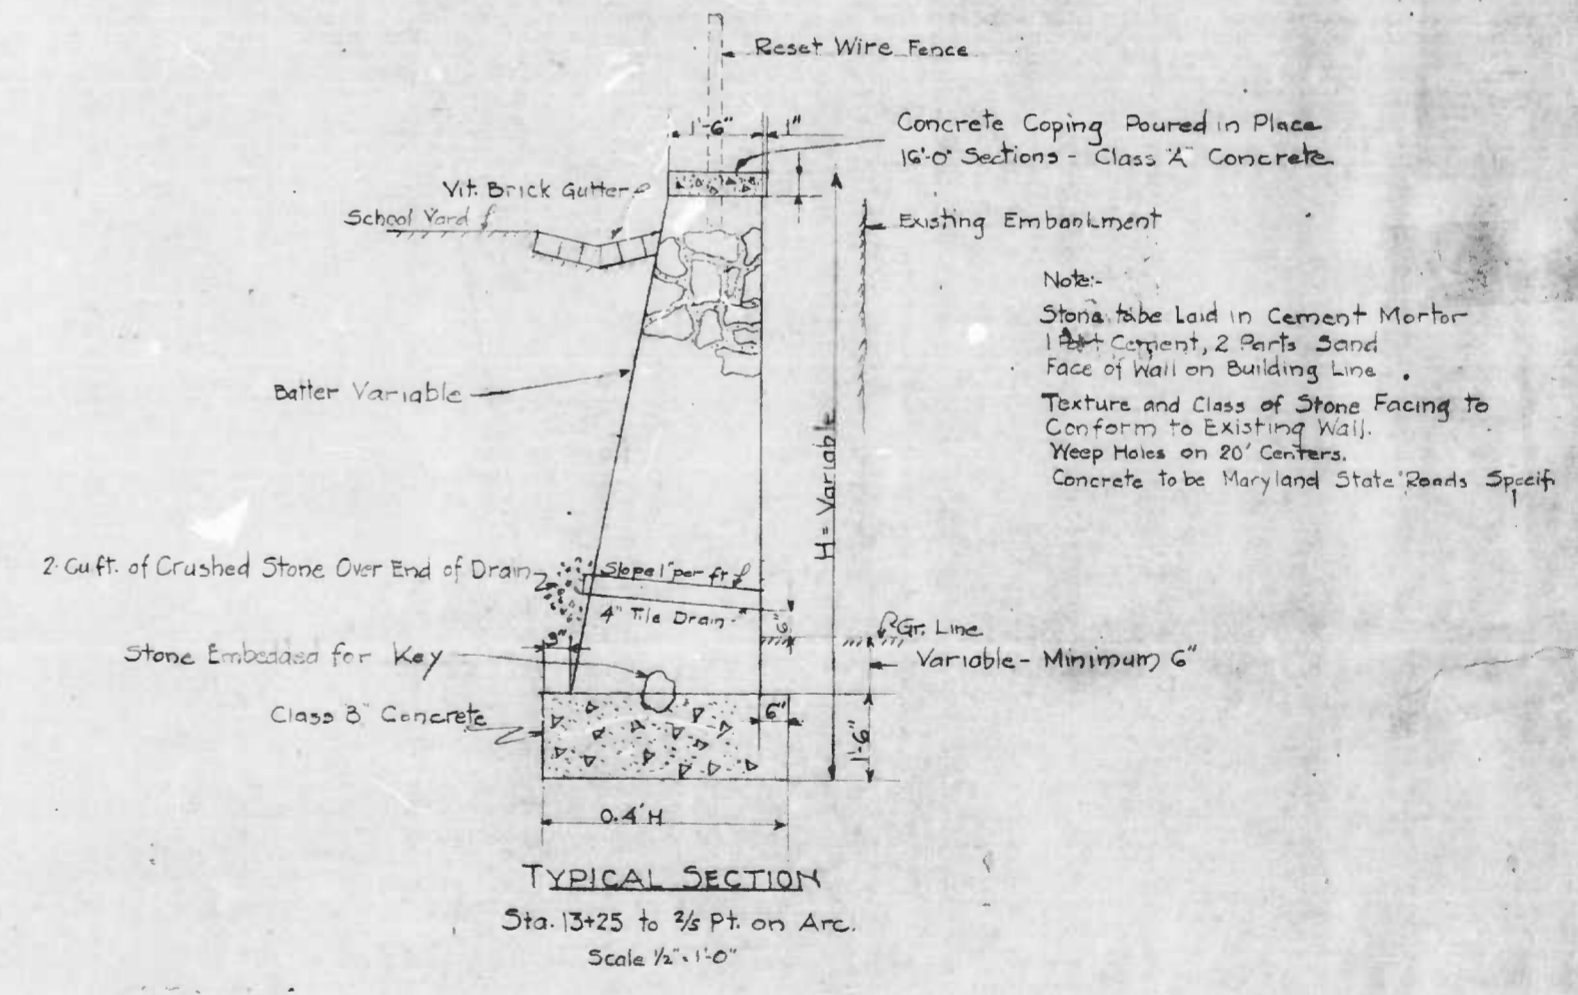 Reset Wire Fence
1'-6"
1"
Concrete Coping Poured in Place
16'-0" Sections - Class "A" Concrete
Vit. Brick Gutter
School Yard
Existing Embankment
Note:-
Stone to be Laid in Cement Mortor
1 Part Cement, 2 Parts Sand
Face of Wall on Building Line
Texture and Class of Stone Facing to
Conform to Existing Wall.
Weep Holes on 20' Centers.
Concrete to be Maryland State Roads Specif.
Batter Variable
H = Variable
2 Cu ft. of Crushed Stone Over End of Drain
Slope 1" per ft
4" Tile Drain
6"
Gr. Line
Variable - Minimum 6"
Stone Embedded for Key
Class B" Concrete
6"
1'-6"
0.4'H
TYPICAL SECTION
Sta. 13+25 to 2/5 Pt. on Arc.
Scale 1/2" = 1'-0"